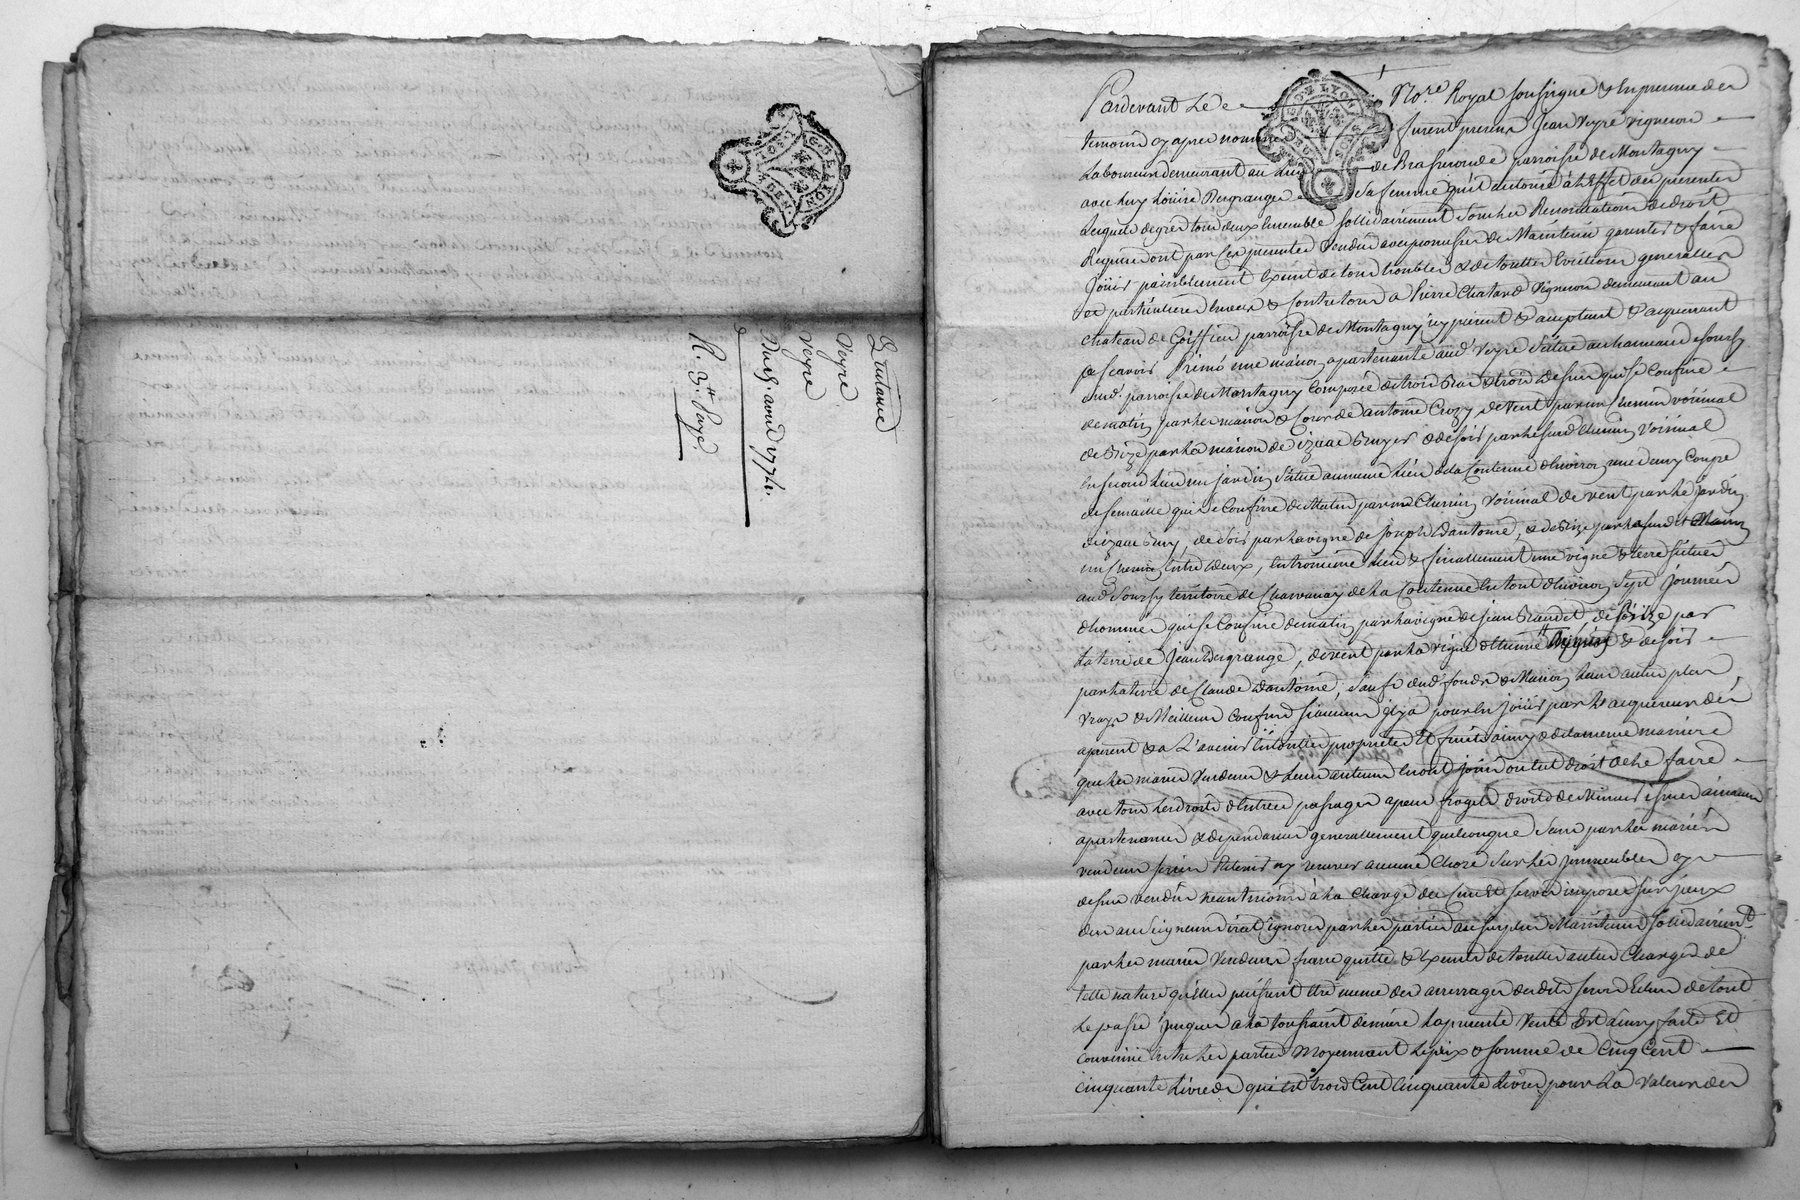 GÉN. DE LYON
Quittance
Veyre
Veyre
Du 15 avril 1774.
R. 3tt Payé.
Pardevant Le Nore. Royal soussigné & En presence des
temoins cy apres nommés furent presens Jean Veyre vigneron
Laboureur demeurant au Lieu de Brasseronde parroisse de Montagny
avec luy Loüise Bergrange sa femme qu'il autorise à L'Effet des presentes
Lesquels de gré tous deux Ensemble sollidairement sous les Renonciations de droit
Requises ont par Ces presentes Vendu avec promesse de Maintenir garentir & faire
joüir paisiblement Exempt de tous troubles & de touttes Evictions generalles
et particulieres Envers & Contre tous à Pierre Chatard Vigneron demeurant au
chateau de Goiffieu parroisse de Montagny icy present & acceptant & acquerant
sçavoir Primo une maison apartenante aud. Veyre Scitué au hameau de Sourzy
aud. parroisse de Montagny Composée de trois Bas & trois Dessus qui se Confine
de matin par les maison & Cour de antoine Crozy de Vent par un Chemin voisinal
de Bize par la maison de izaac Bruyer & de soir par le susd. Chemin Voisinal
en second Lieu un jardin Scitué au meme Lieu de la Contenue d'Environ une demy Coupe
de semaille qui se Confine de Matin par un Chemin Voisinal de vent par le jardin
d'izaac Bruy, de soir par la vigne de joseph Dantoine, & de Bize par
un Chemin Entre deux, En troisieme Lieu & finallement une vigne & terre Scituée
aud. Sourzy territoire de Charvanay de la Contenue En tout d'Environ Sept journées
d'hommes qui se Confine de matin par la vigne de jean Baudet de Bize par
La terre de Jean Bergrange, de vent par la vigne d'Etienne & de soir
par la terre de Claude Dantoine, Sauf desd. fonds & Maison leurs autres plus
vrays & Meilleurs Confins si aucuns il y a pour En joüir par L'acquereur dés
apresent & à L'avenir En touttes proprietés Et fruits ainsy & de la meme maniere
que les mariés Vendeurs & leurs auteurs En ont joüi ou eut droit de le faire
avec tous les droits d'Entrées passages
apartenances & dependances generallement quelconques Sans par les mariés
vendeurs s'en Retenir ny reserver aucune Chose Sur les jmmeubles cy
dessus vendus neantmoins à la Charge des Cens Et servis imposés sur jceux
dus au Seigneur direct ignorés par les parties au surplus Maintenus sollidairemt.
par les mariés Vendeurs francs quittes & Exempts de touttes autres Charges de
telle nature qu'Elles puissent Etre meme des arrerages desdits servis Echus de tout
le passé jusques à la toussaint derniere La presente Vente Est ainsy faite Et
convenüe Entre les parties Moyennant Le prix & somme de Cinq Cent
cinquante Livres qui est trois Cent Cinquante Livres pour La Valeur des